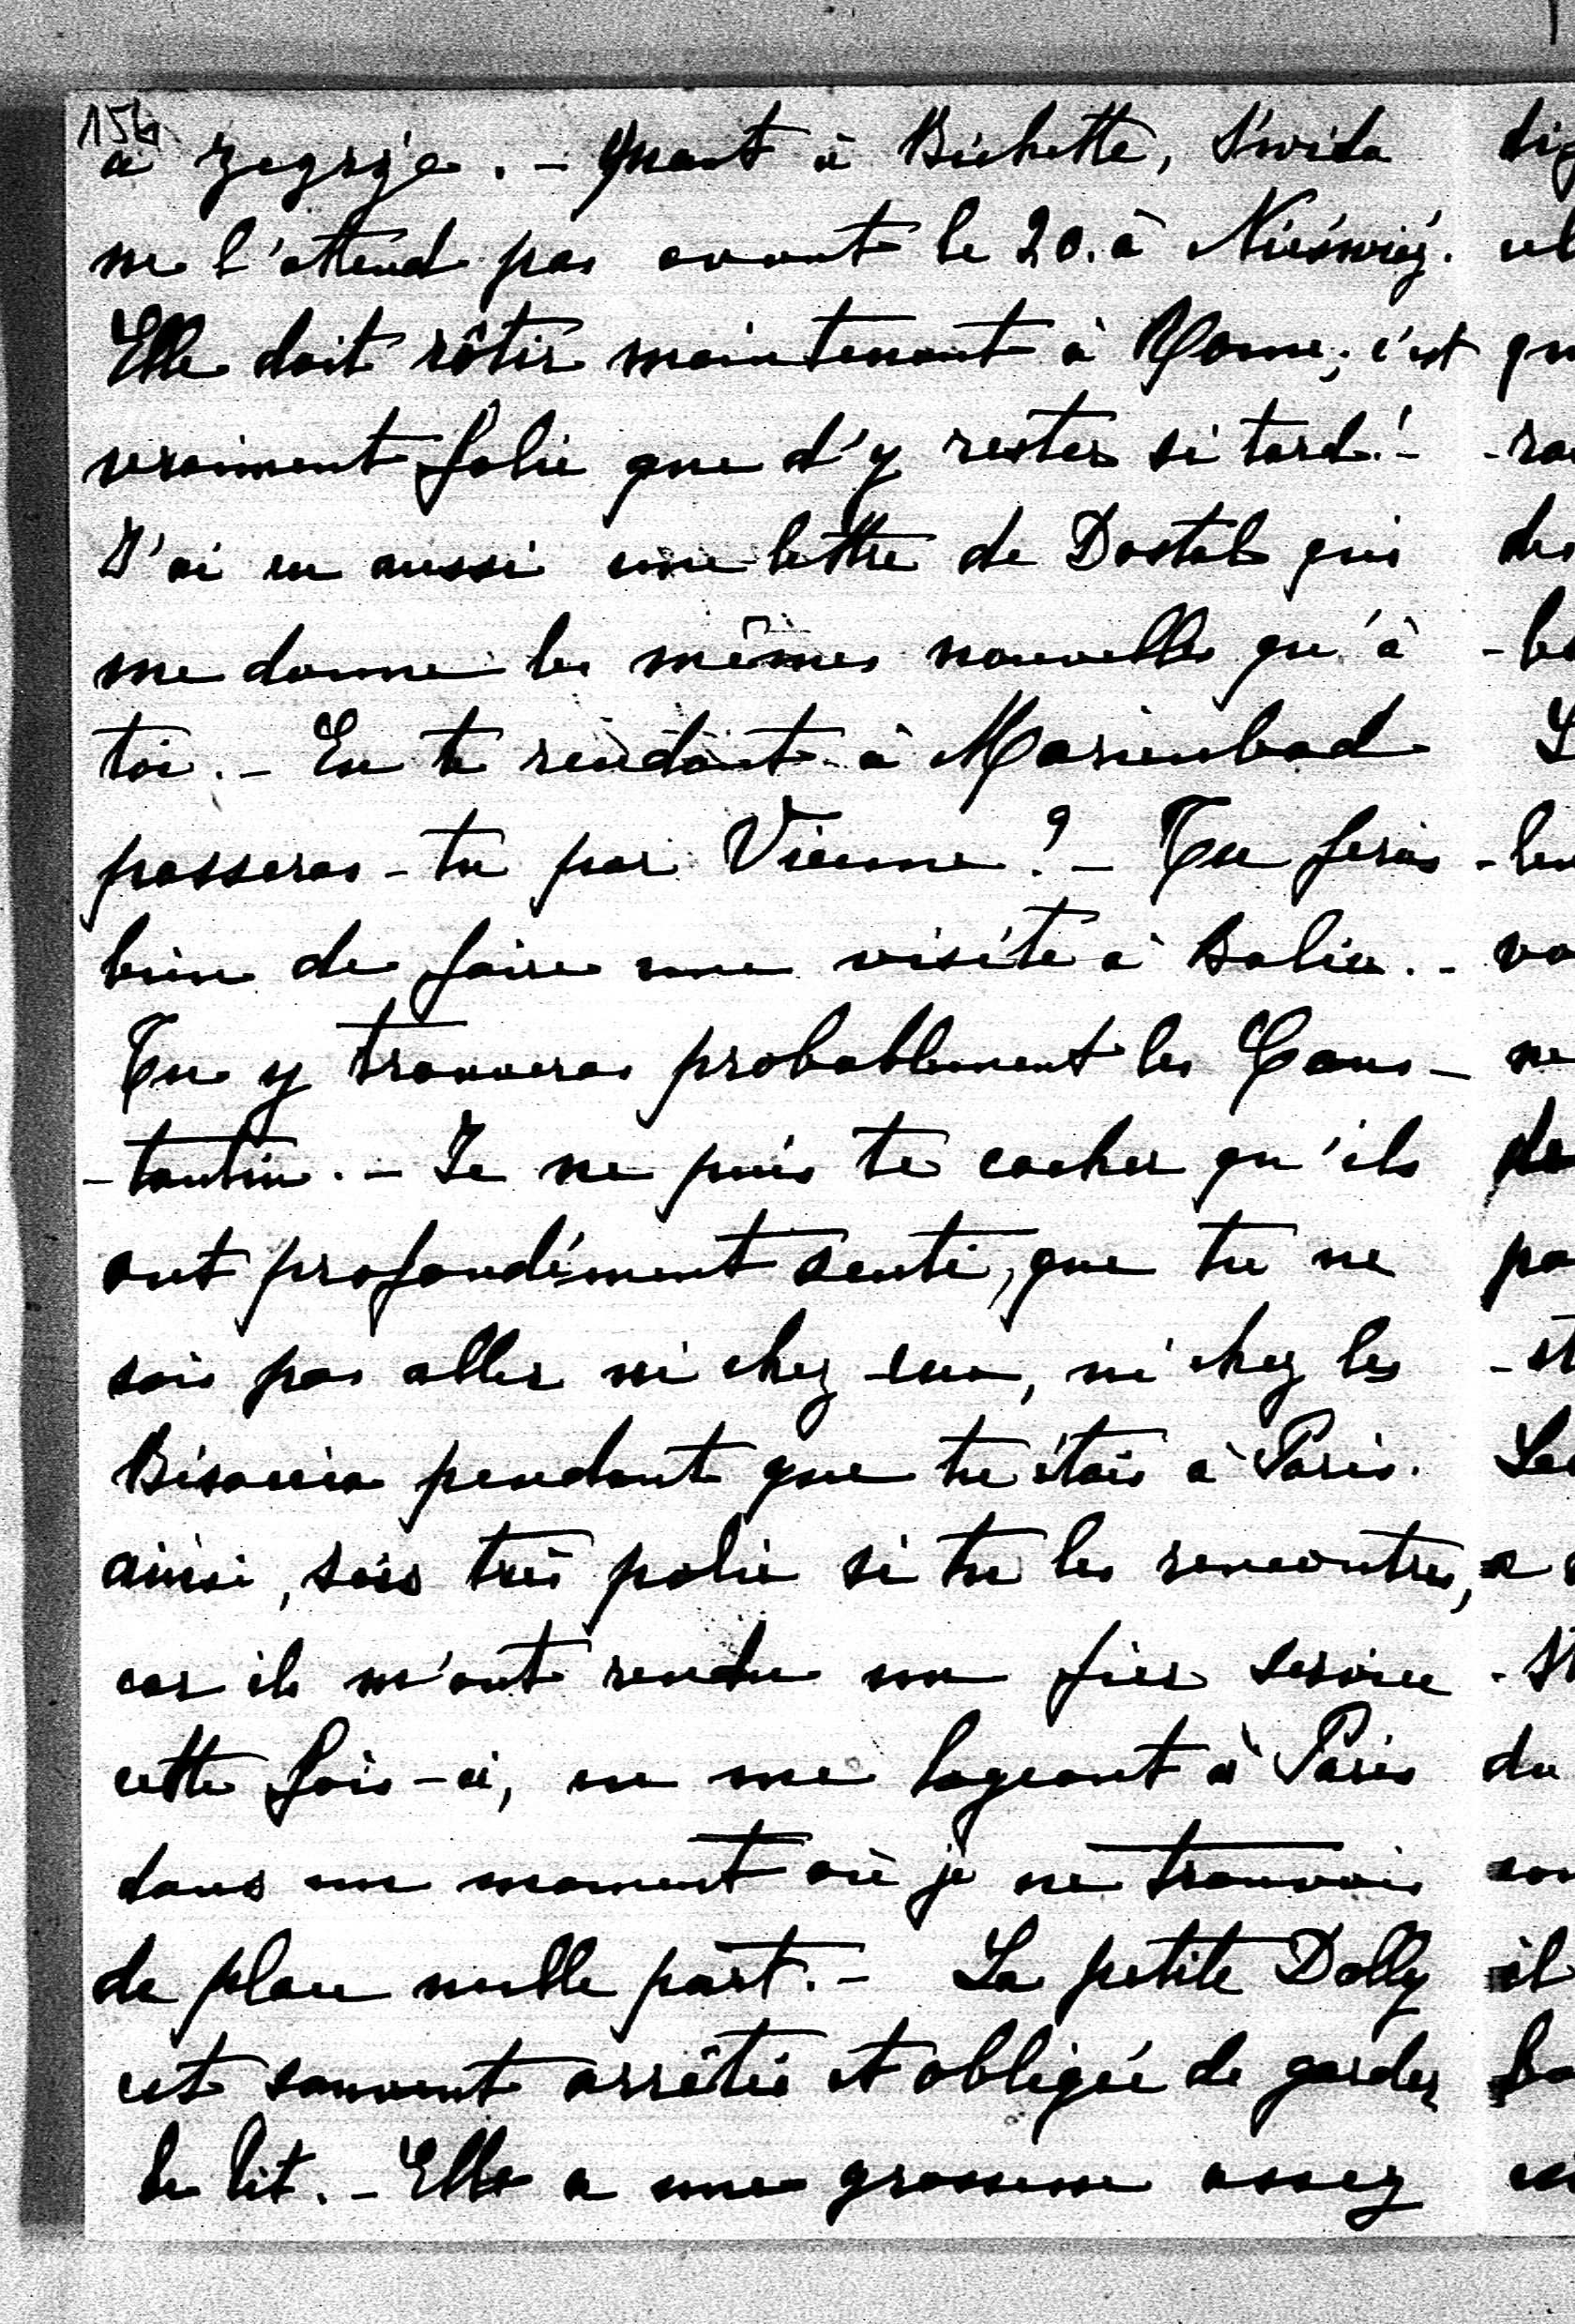 154
à Zegrże. - Quant à Bichette, Swida
ne l'attend pas avant le 20. à Nieśwież.
Elle doit rôtir maintenant à Rome; c'est
vraiment folie que d'y rester si tard! -
J'ai eu aussi une lettre de Dostal qui
me donne les mêmes nouvelles qu'à
toi. - En te rendant à Marienbad
passeras-tu par Vienne? - Tu ferais
bien de faire une visite à Balia. -
Tu y trouveras probablement les Cons-
-tantin. - Je ne puis te cacher qu'ils
ont profondément senti, que tu ne
sois pas aller ni chez eux, ni chez les
Bisaccia pendant que tu étais à Paris.
ainsi, sois très polie si tu les rencontres,
car ils m'ont rendu un fier service
cette fois-ci, en me logeant à Paris
dans un moment où je ne trouvais
de place nulle part. - La petite Dolly
est souvent arrêtée et obligée de garder
le lit. - Elle a une grossesse assez